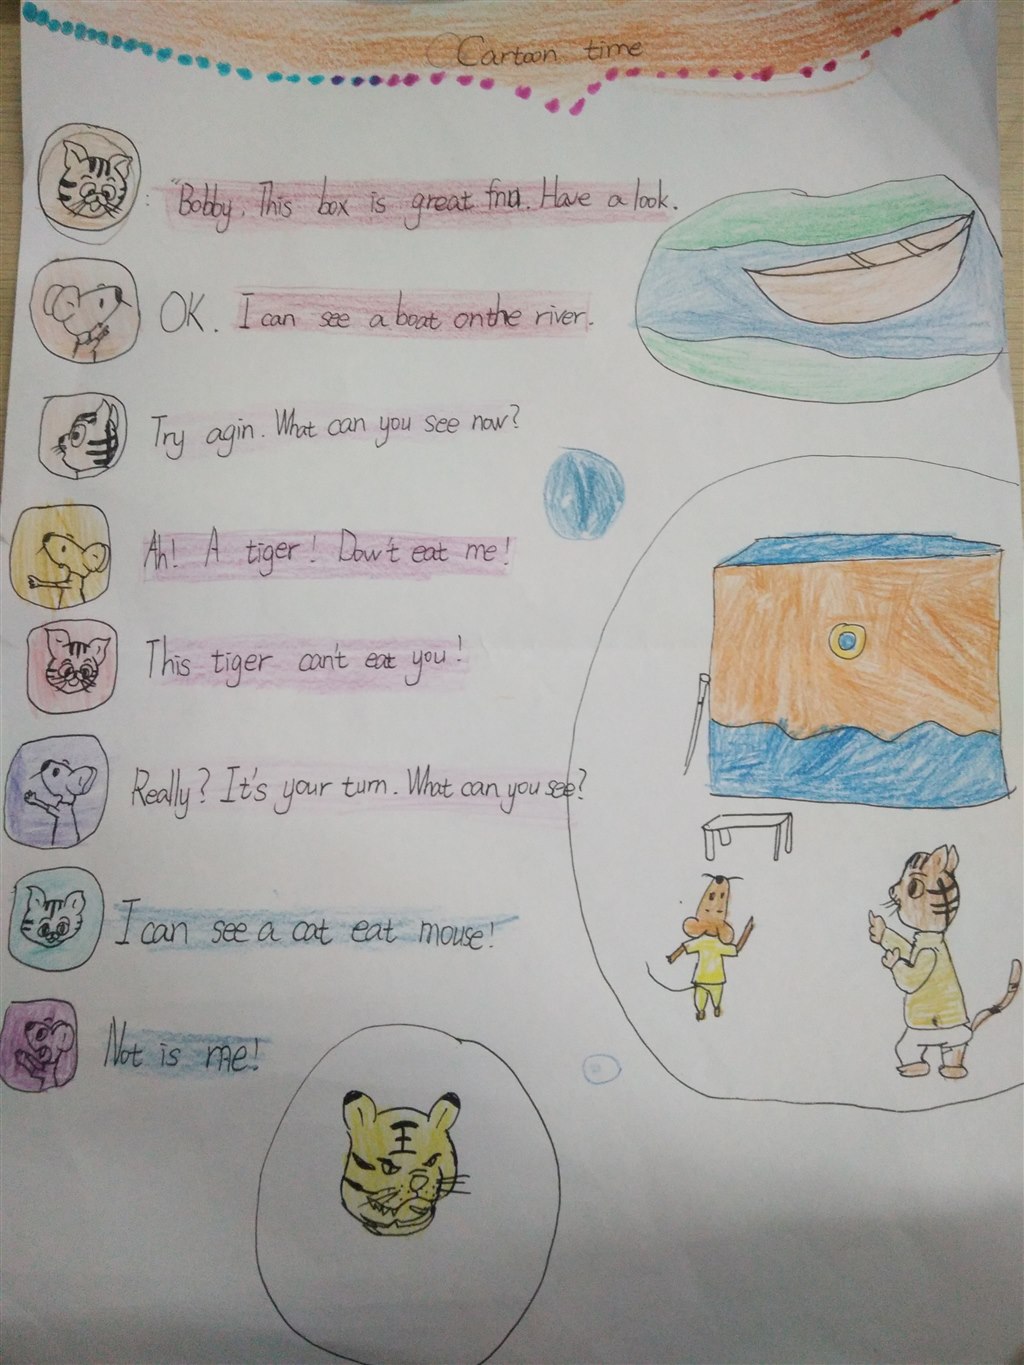 Cartoon time
: "Bobby, This box is great fnu. Have a look.
OK. I can see a boat on the river.
Try agin. What can you see now?
Ah! A tiger! Dow't eat me!
This tiger can't eat you!
Really? It's your turn. What can you see?
I can see a cat eat mouse!
Not is me!
王